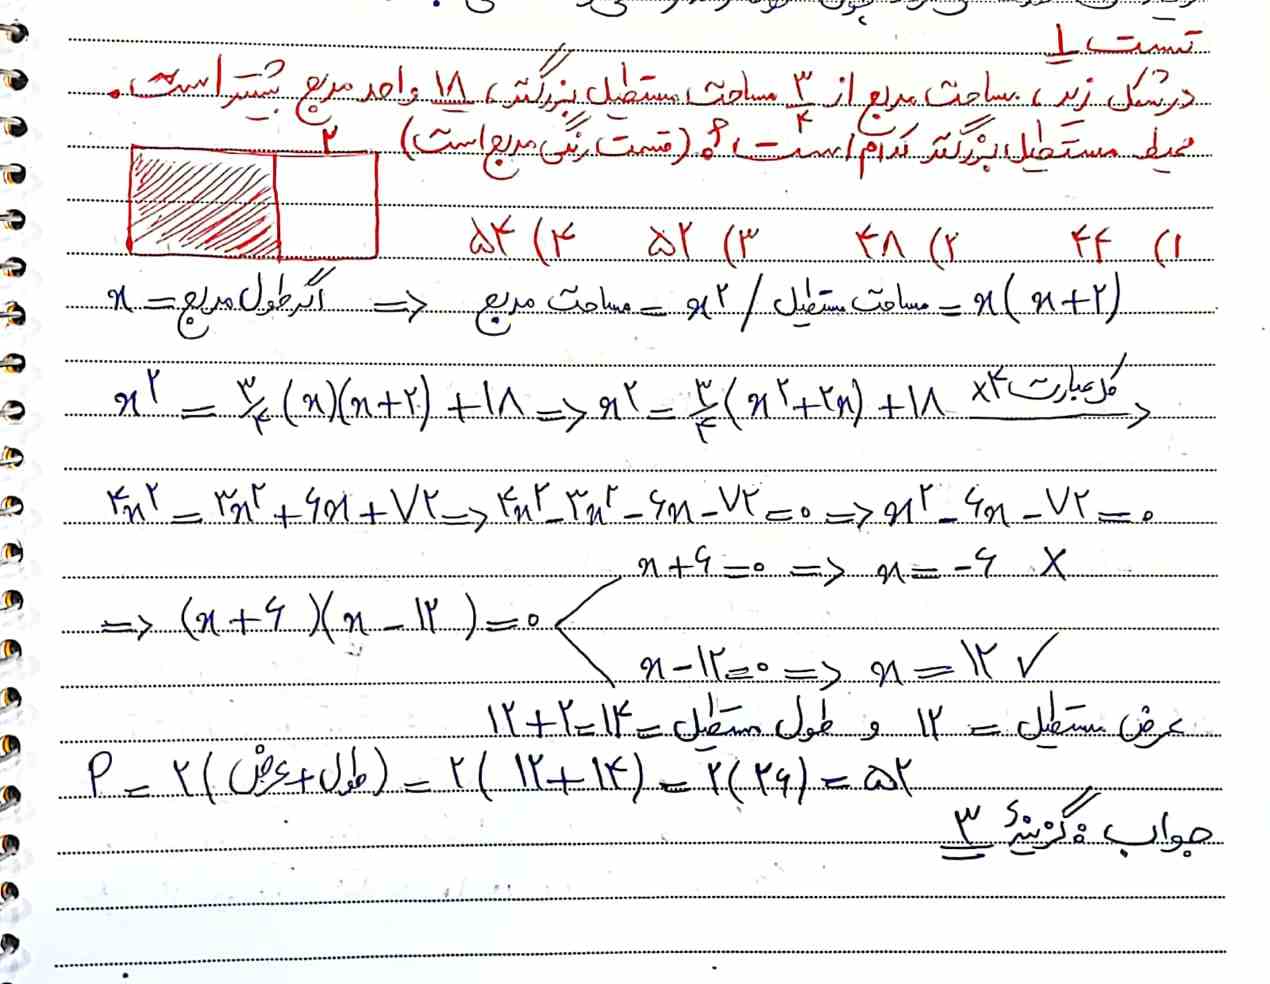 تست ۱
در شکل زیر، مساحت مربع از ۳/۴ مساحت مستطیل بزرگتر، ۱۸ واحد مربع بیشتر است.
محیط مستطیل بزرگتر کدام است؟ (قسمت رنگی مربع است)
۲
۱) ۴۴ ۲) ۴۸ ۳) ۵۲ ۴) ۵۴
x = اگر طول مربع => مساحت مربع = x^۲ / مساحت مستطیل = x(x+۲)
x^۲ = ۳/۴ (x)(x+۲) + ۱۸ => x^۲ = ۳/۴ (x^۲+۲x) + ۱۸ کل عبارت ×۴ →
۴x^۲ = ۳x^۲ + ۶x + ۷۲ => ۴x^۲ - ۳x^۲ - ۶x - ۷۲ = ۰ => x^۲ - ۶x - ۷۲ = ۰
=> (x+۶)(x-۱۲) = ۰
x+۶=۰ => x = -۶ ×
x-۱۲=۰ => x = ۱۲ ✓
عرض مستطیل = ۱۲ و طول مستطیل = ۱۲+۲=۱۴
P = ۲(طول+عرض) = ۲(۱۲+۱۴) = ۲(۲۶) = ۵۲
جواب: گزینهٔ ۳